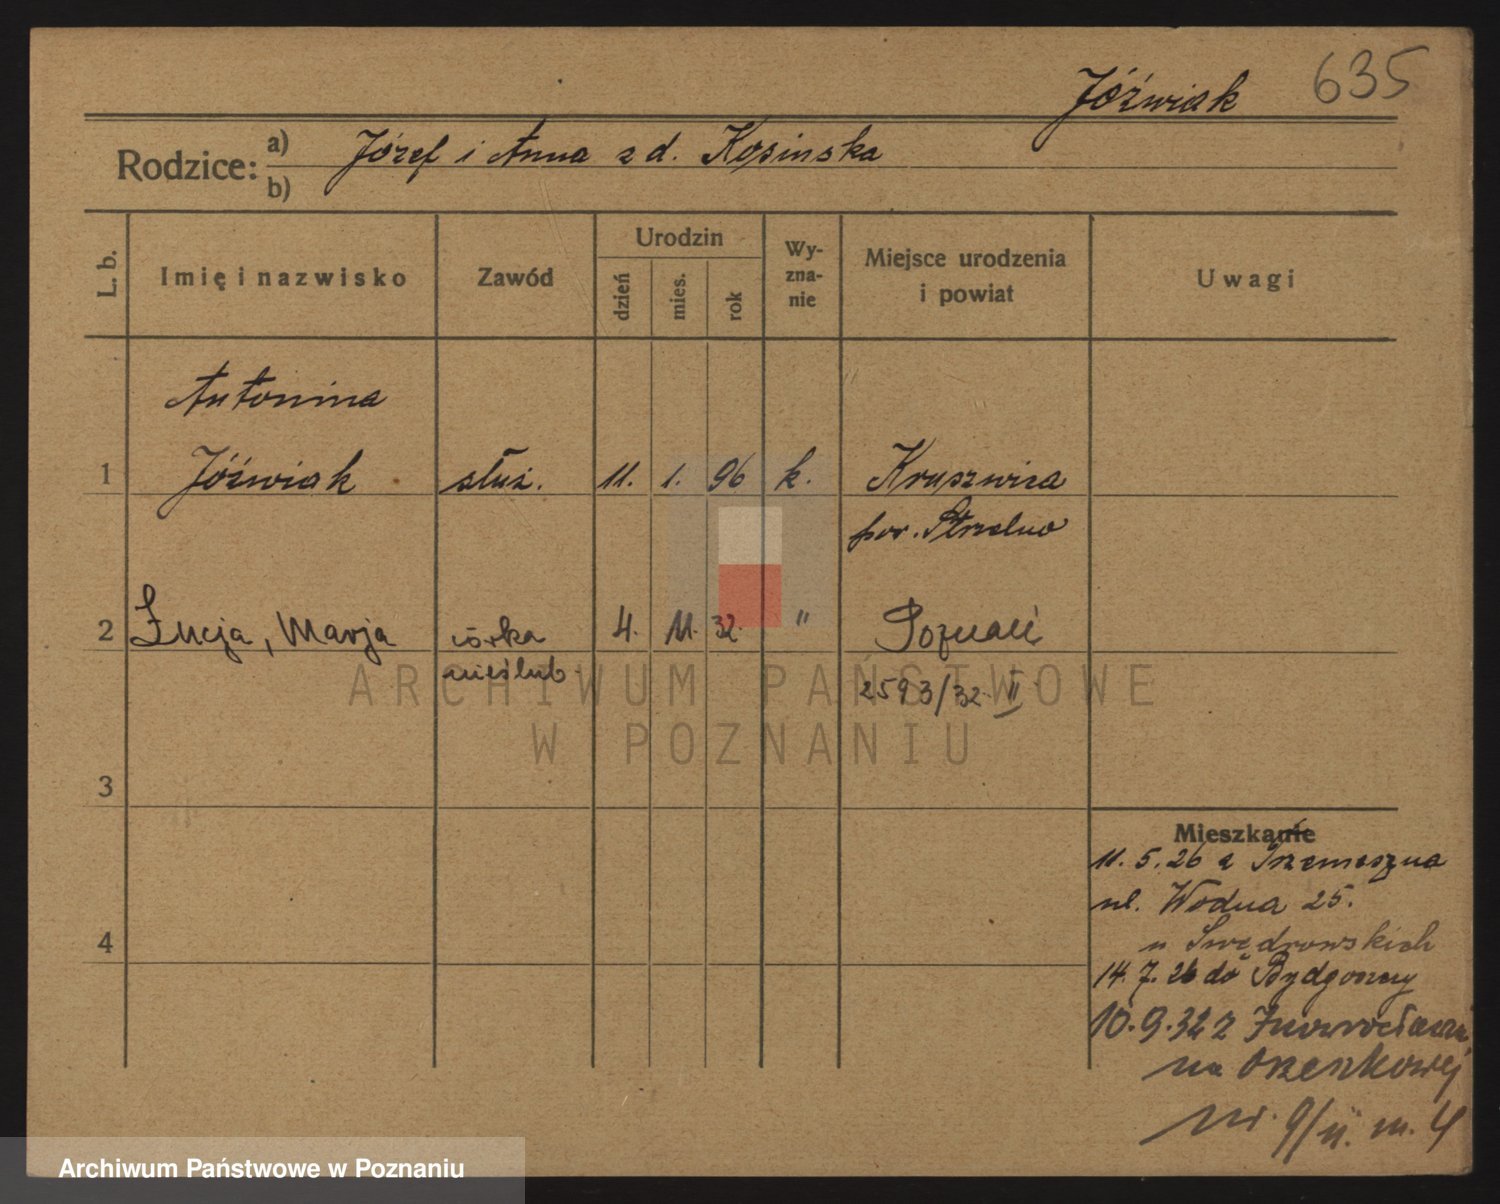 635
Jóźwiak
Rodzice: a) Józef i Anna z d. Kosinska
b)
L. b. Imię i nazwisko Zawód Urodzin dzień mies. rok Wy-zna-nie Miejsce urodzenia i powiat Uwagi
Antonina
1 Jóźwiak służ. 11. 1. 96 k. Kruszwica
pow. Strzelno
2 Łucja, Marja córka 4. 11. 32. " Poznań
nieślub. 2593/32 II
3
Mieszkanie
11. 5. 26 z Trzemeszna
ul. Wodna 25.
4
u
14. 7. 26 do Bydgoszczy
10. 9. 32 z Inowrocławia
na Orzeszkowej
nr. 9/11. m. 4
ARCHIWUM PAŃSTWOWE
W POZNANIU
Archiwum Państwowe w Poznaniu